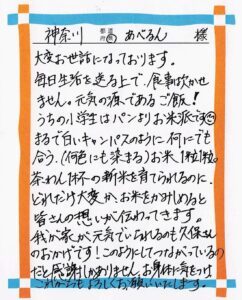 神奈川 都道府県 あべるん 様
大変お世話になっております。
毎日生活を送る上で、食事は欠かせ
ません。元気の源であるご飯!
うちの小学生はパンよりお米派です
まるで白いキャンパスのように何にでも
合う、(何色にも染まる)お米1粒1粒。
茶わん1杯の新米を育てられるのに
どれだけ大変か、お米をかみしめると
皆さんの想いが伝わってきます。
我が家が元気でいられるのも久保さん
のおかげです!このようにしてつながっているの
だと感謝しかありません。お身体に気をつけ
これからもよろしくお願いいたします。